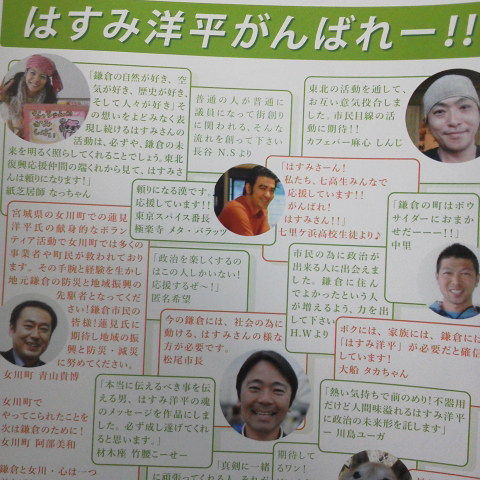 はすみ洋平がんばれー!!
「鎌倉の自然が好き、空
気が好き、歴史が好き、
そして人々が好き」そ
の想いをよどみなく表
現し続けるはすみさんの
活動は、必ずや、鎌倉の未
来を明るく照らしてくれることでしょう。東北
復興応援仲間の端くれから見て、はすみさ
んは頼りになります!」
紙芝居師 なっちゃん
普通の人が普通に
議員になって街創り
に関われる、そんな
流れを創って下さい
長谷 N.Sより
東北の活動を通して、
お互い意気投合しま
した。市民目線の活
動に期待!!
カフェバー麻心 しんじ
頼りになる漢です、
応援しています!!
東京スパイス番長
極楽寺 メタ・バラッツ
「はすみさーん!
私たち、七高生みんなで
応援しています!!
がんばれ!
はすみさん!!」
七里ケ浜高校生徒より♪
「鎌倉の町はボウ
サイダーにおまか
せだーーー!!」
中里
宮城県の女川町での蓮見
洋平氏の献身的なボラン
ティア活動で女川町では多くの
事業者や町民が救われており
ます。その手腕と経験を生かし
地元鎌倉の防災と地域振興の
先駆者となってくだ
さい!鎌倉市民の
皆様!蓮見氏に
期待し地域の振
興と防災・減災
に努めてください。
女川町 青山貴博
「政治を楽しくするの
はこの人しかいない!
応援するぜ〜!」
匿名希望
市民の為に政治が
出来る人に出会えま
した。鎌倉に住ん
でよかったという人
が増えるよう、力を出
して下さい
H.Wより
今の鎌倉には、社会の為に
動ける、はすみさんの様な
方が必要です。
松尾市長
ボクには、家族には、鎌倉には
「はすみ洋平」が必要だと確信
しています!
大船 タカちゃん
「本当に伝えるべき事を伝
える男、はすみ洋平の魂
のメッセージを作品にしま
した。必ず成し遂げてくれ
ると思います。」
材木座 竹腰こーせー
「熱い気持ちで前のめり!不器用
だけど人間味溢れるはすみ洋平
に政治の未来形を託します」
ー 川島ユーガ
女川町で
やってこられたことを
次は鎌倉のために!
女川町 阿部美和
鎌倉と女川・心は一つ
「真剣に一緒
に頑張ってくれる人、それが
期待して
るワン!